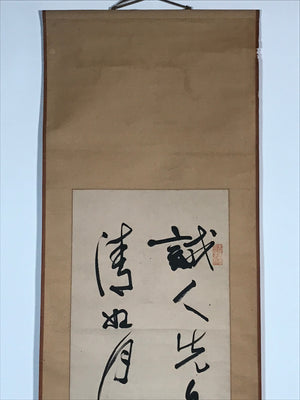 誠人先
清如月